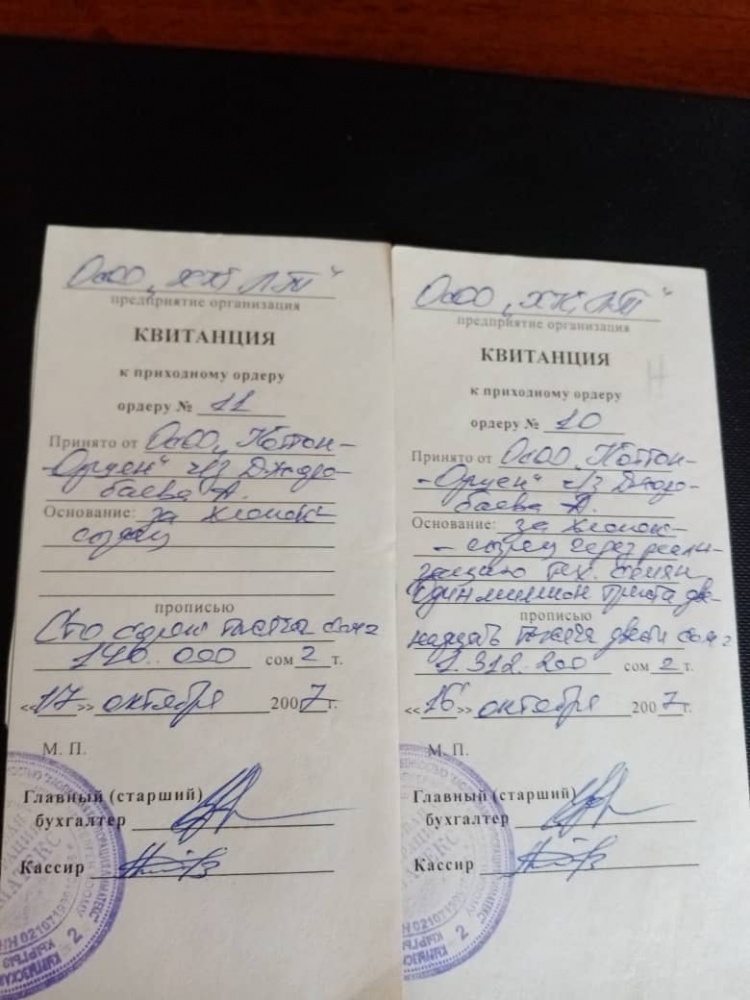 ОсОО „ХК ЛТ"
предприятие организация
КВИТАНЦИЯ
к приходному ордеру
ордеру № 11
Принято от ОсОО „Коттон-
-Орден" ч/з Джоро-
баева А.
Основание: за хлопок-
сырец
прописью
Сто сорок тысяч сом
140.000 сом т.
«17» октября 2007 г.
М. П.
Главный (старший)
бухгалтер
Кассир
ОсОО „ХК ЛТ"
предприятие организация
КВИТАНЦИЯ
к приходному ордеру
ордеру № 10
Принято от ОсОО „Коттон-
-Орден" ч/з Джоро-
баева А.
Основание: за хлопок-
- сырец через реали-
зацию тех. семян
Один миллион триста две-
прописью
надцать тысяч двести сом
1.312.200 сом т.
«16» октября 2007 г.
М. П.
Главный (старший)
бухгалтер
Кассир